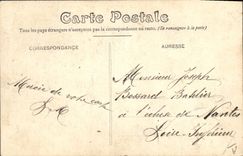 Carte Postale
Tous les pays étrangers n'acceptent pas la correspondance au recto. (Se renseigner à la poste)
CORRESPONDANCE
ADRESSE
Monsieur Joseph
Bessard Batelier
à l'écluse de Nantes
Loire-Inférieure
Merci de votre carte